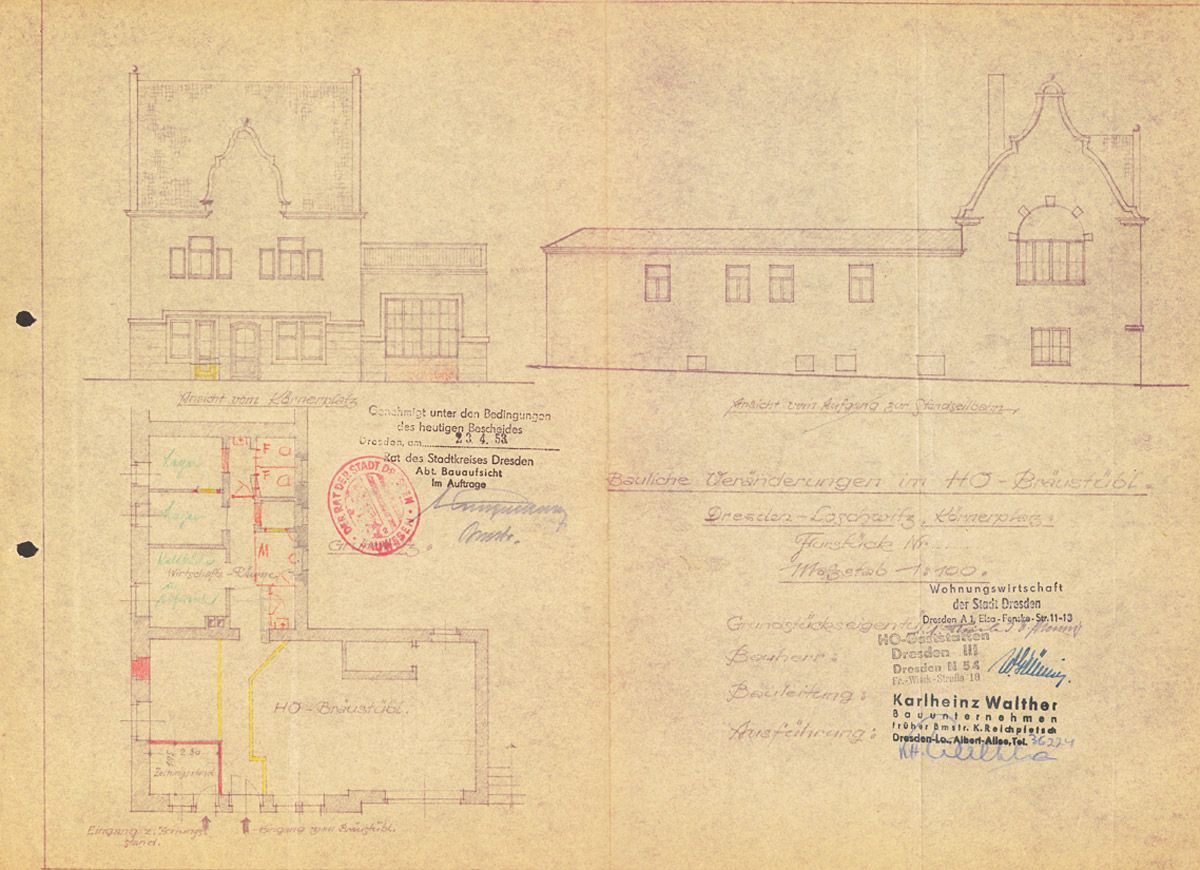 Ansicht vom Körnerplatz
Ansicht vom Aufgang zur Standseilbahn
Genehmigt unter den Bedingungen
des heutigen Bescheides
Dresden, am 23. 4. 53
Rat des Stadtkreises Dresden
Abt. Bauaufsicht
Im Auftrage
DER RAT DER STADT DRESDEN
BAUWESEN
Bauliche Veränderungen im HO-Bräustübl.
Dresden-Loschwitz, Körnerplatz
Flurstück Nr.
Maßstab 1:100.
Grundstückseigent
Wohnungswirtschaft
der Stadt Dresden
Dresden A 1, Elsa-Fenske-Str. 11-13
Bauherr:
HO-Gaststätten
Dresden III
Dresden N 54
Fr.-Wieck-Straße 18
Bauleitung:
Karlheinz Walther
Bauunternehmen
früher Bmstr. K. Reichpietsch
Dresden-Lo., Albert-Allee, Tel. 36224
Ausführung:
Lager
F
F
M
Wirtschafts-Räume
HO-Bräustübl.
2.50
Zeitungsstand
Eingang z. Zeitungs
stand.
Eingang zum Bräustübl.